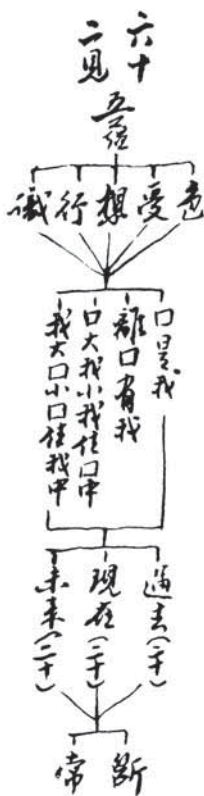 六十
二見
五蘊
色
受
想
行
識
口是我
離口有我
口大我小我住口中
我大口小口住我中
過去(二十)
現在(二十)
未來(二十)
斷
常